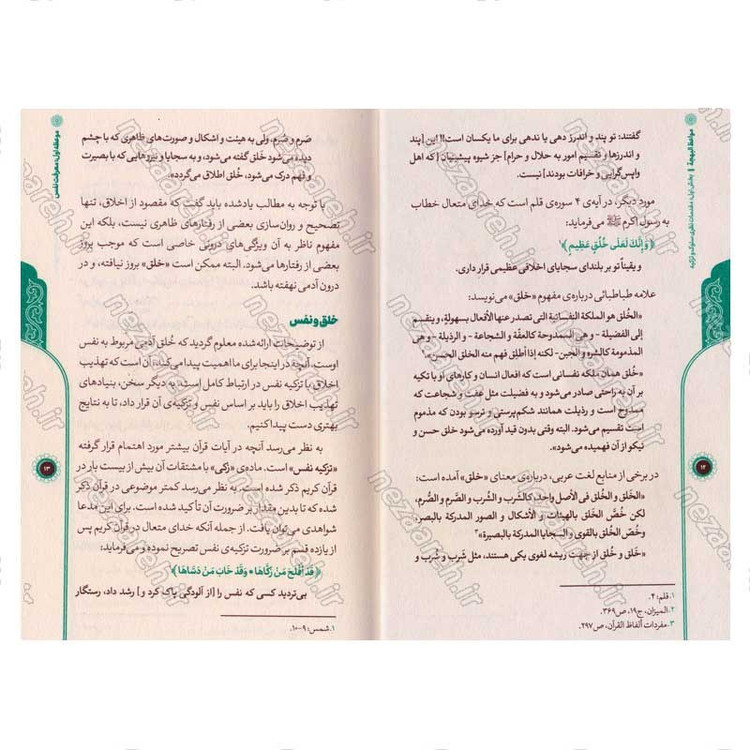 مواعظ البهجة | بخش اول: مقدمات نظری سلوک و تزکیه
گفتند: تو پند و اندرز دهی یا ندهی برای ما یکسان است!! این [پند
و اندرزها و تقسیم امور به حلال و حرام] جز شیوه پیشینیان [که اهل
واپس‌گرایی و خرافات بودند] نیست.
مورد دیگر، در آیه‌ی ۴ سوره‌ی قلم است که خدای متعال خطاب
به رسول اکرم ﷺ می‌فرماید:
﴿وَ إِنَّكَ لَعَلى خُلُقٍ عَظِيمٍ﴾۱
و یقیناً تو بر بلندای سجایای اخلاقی عظیمی قرار داری.
علامه طباطبائی درباره‌ی مفهوم «خلق» می‌نویسد:
«الخُلق هو الملكة النفسانية التي تصدر عنها الأفعال بسهولة، و ينقسم
إلى الفضيلة - و هي الممدوحة كالعفّة و الشجاعة - و الرذيلة - و هي
المذمومة كالشره و الجبن - لكنّه إذا أطلق فهم منه الخلق الحسن».۲
«خُلق همان ملکه نفسانی است که افعال انسان و کارهای او با تکیه
بر آن به راحتی صادر می‌شود و به فضیلت مثل عفت و شجاعت که
ممدوح است و رذیلت همانند شکم‌پرستی و ترسو بودن که مذموم
است تقسیم می‌شود. البته وقتی بدون قید آورده می‌شود خلق حسن و
نیکو از آن فهمیده می‌شود».
در برخی از منابع لغت عربی، درباره‌ی معنای «خلق» آمده است:
«الخَلق و الخُلق في الأصل واحد، كالشَرب و الشُرب و الصَرم و الصُرم،
لكن خُصّ الخَلق بالهيئات و الأشكال و الصور المدركة بالبصر،
و خُصّ الخُلق بالقوى و السجايا المدركة بالبصيرة».۳
«خَلق و خُلق از جهت ریشه لغوی یکی هستند، مثل شَرب و شُرب و
۱. قلم: ۴.
۲. المیزان، ج۱۹، ص۳۶۹.
۳. مفردات ألفاظ القرآن، ص۲۹۷.
۱۲
موعظه اول: معرفت نفس
صَرم و صُرم، ولی به هیئت و اشکال و صورت‌های ظاهری که با چشم
دیده می‌شود خَلق گفته می‌شود، و به سجایا و نیروهایی که با بصیرت
و فهم درک می‌شود، خُلق اطلاق می‌گردد».
با توجه به مطالب یادشده باید گفت که مقصود از اخلاق، تنها
تصحیح و روان‌سازی بعضی از رفتارهای ظاهری نیست، بلکه این
مفهوم ناظر به آن ویژگی‌های درونی خاصی است که موجب بروز
بعضی از رفتارها می‌شود. البته ممکن است «خلق» بروز نیافته، و در
درون آدمی نهفته باشد.
خلق و نفس
از توضیحات ارائه شده معلوم گردید که خُلق آدمی مربوط به نفس
اوست. آنچه در اینجا برای ما اهمیت پیدا می‌کند، آن است که تهذیب
اخلاق با تزکیه نفس در ارتباط کامل است، به دیگر سخن، بنیادهای
تهذیب اخلاق را باید بر اساس نفس و تزکیه‌ی آن قرار داد، تا به نتایج
بهتری دست پیدا کنیم.
به نظر می‌رسد آنچه در آیات قرآن بیشتر مورد اهتمام قرار گرفته
«تزکیه نفس» است. ماده‌ی «زکی» با مشتقات آن بیش از بیست بار در
قرآن کریم ذکر شده است. به نظر می‌رسد کمتر موضوعی در قرآن ذکر
شده که تا بدین مقدار بر ضرورت آن تأکید شده است. برای این مدعا
شواهدی می‌توان یافت. از جمله آنکه خدای متعال در قرآن کریم پس
از یازده قسم بر ضرورت تزکیه‌ی نفس تصریح نموده و می‌فرماید:
﴿قَدْ أَفْلَحَ مَنْ زَكَّاهَا ٭ وَقَدْ خَابَ مَنْ دَسَّاهَا﴾۱
بی‌تردید کسی که نفس را [از آلودگی پاک کرد و] رشد داد، رستگار
۱. شمس: ۹-۱۰.
۱۳
nezaareh.ir